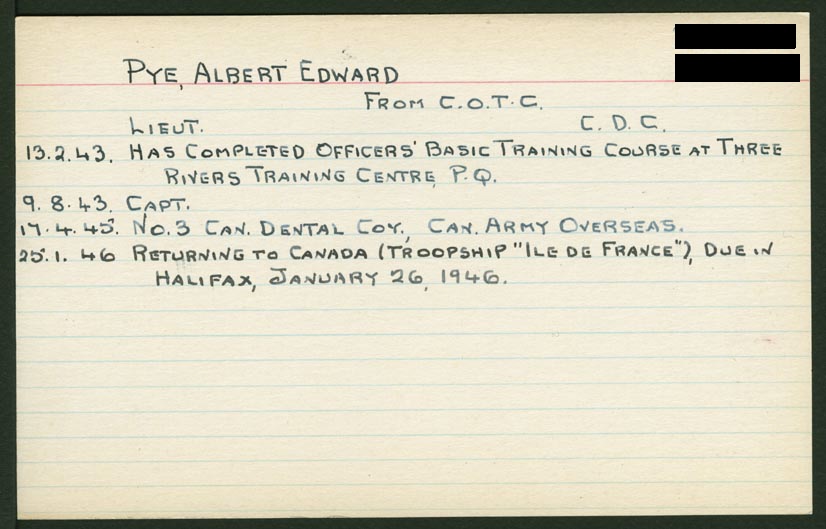 PYE, ALBERT EDWARD
FROM C.O.T.C.
LIEUT. C. D. C.
13.2.43. HAS COMPLETED OFFICERS' BASIC TRAINING COURSE AT THREE
RIVERS TRAINING CENTRE, P.Q.
9. 8. 43. CAPT.
17. 4. 45. NO. 3 CAN. DENTAL COY., CAN. ARMY OVERSEAS.
25. 1. 46 RETURNING TO CANADA (TROOPSHIP "ILE DE FRANCE"), DUE IN
HALIFAX, JANUARY 26, 1946.